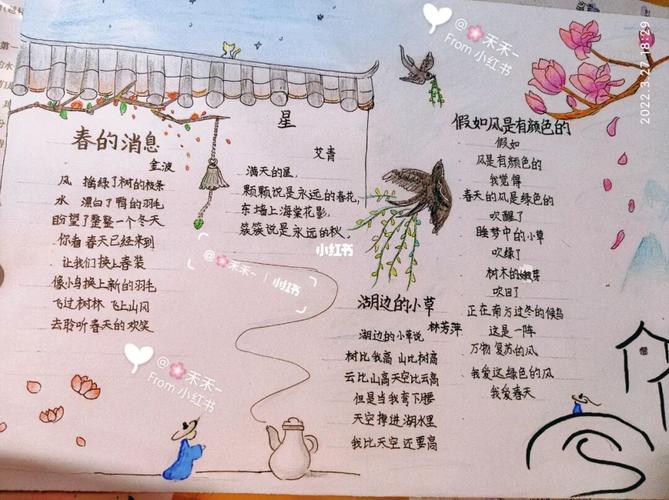 春的消息
金波
风 摇绿了树的枝条
水 漂白了鸭的羽毛
盼望了整整一个冬天
你看 春天已经来到
让我们 换上春装
像小鸟换上新的羽毛
飞过树林 飞上山冈
去聆听春天的欢笑
星
艾青
满天的星,
颗颗说是永远的春花,
东墙上海棠花影,
簇簇说是永远的秋,
湖边的小草
林芳萍
湖边的小草说
树比我高 山比树高
云比山高天空比云高
但是当我弯下腰
天空掉进湖水里
我比天空还要高
假如风是有颜色的
假如
风是有颜色的
我觉得
春天的风是绿色的
吹醒了
睡梦中的小草
吹绿了
树木的嫩芽
吹回了
正在南方过冬的候鸟
这是一阵
万物复苏的风
我爱这绿色的风
我爱春天
@禾禾-
From 小红书
@禾禾- | 小红书
小红书
@禾禾-
From 小红书
2022.3.27 18:29